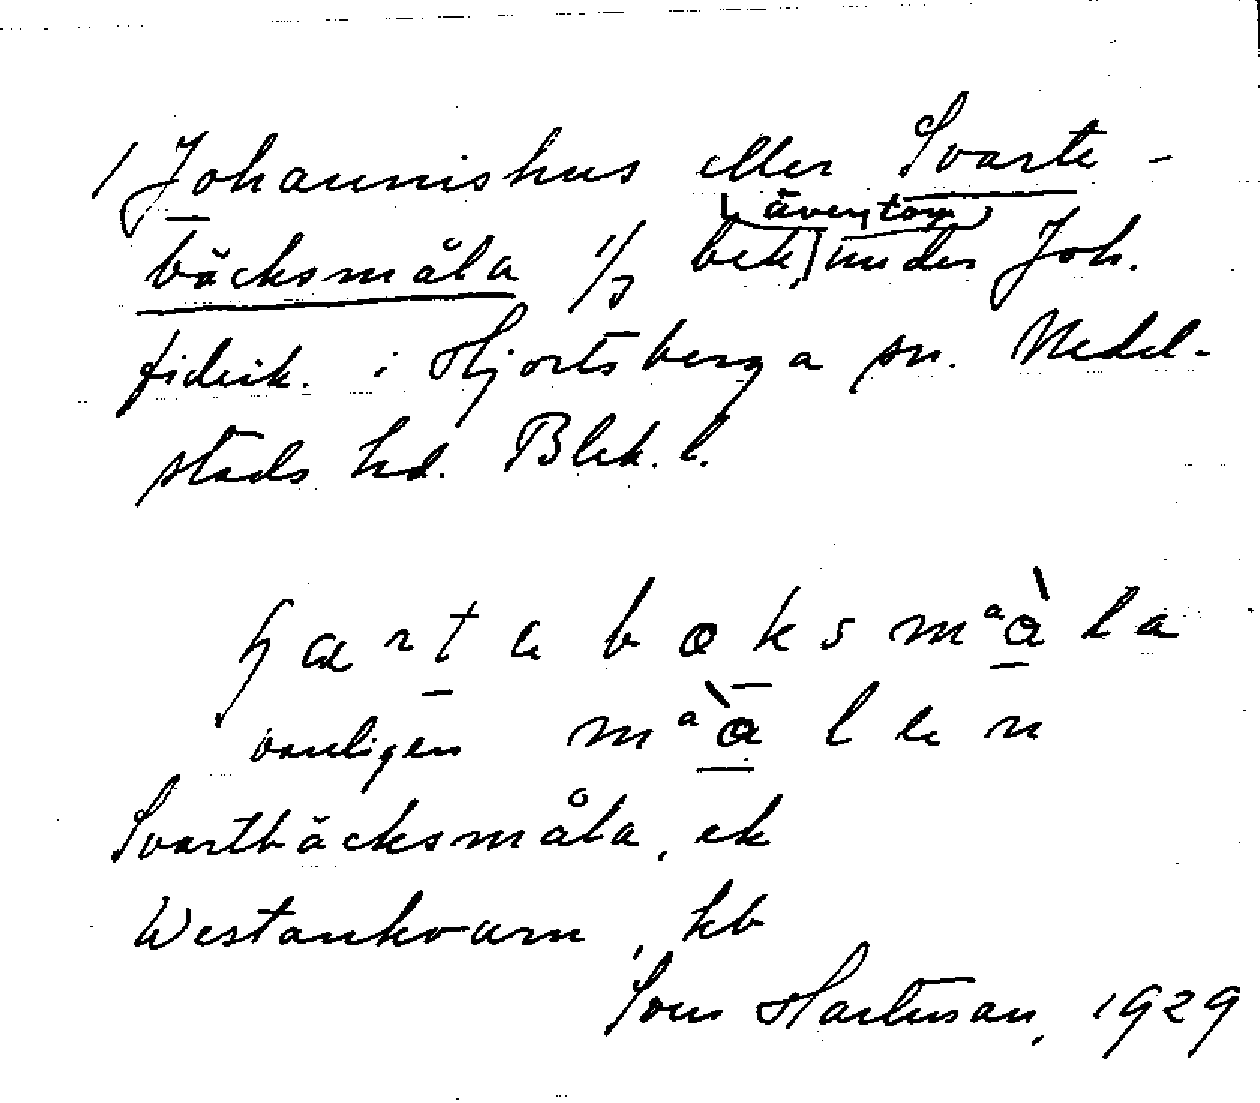 1 Johannishus eller Svarte-
(även tom)
bäcksmåla 1/3 bek, under Joh.
fideik. i Hjortsberga sn. Medel-
stads hd. Blek. l.
vanligen
Svartbäcksmåla, ek
Westankvarn, kb
Sven Hartman, 1929